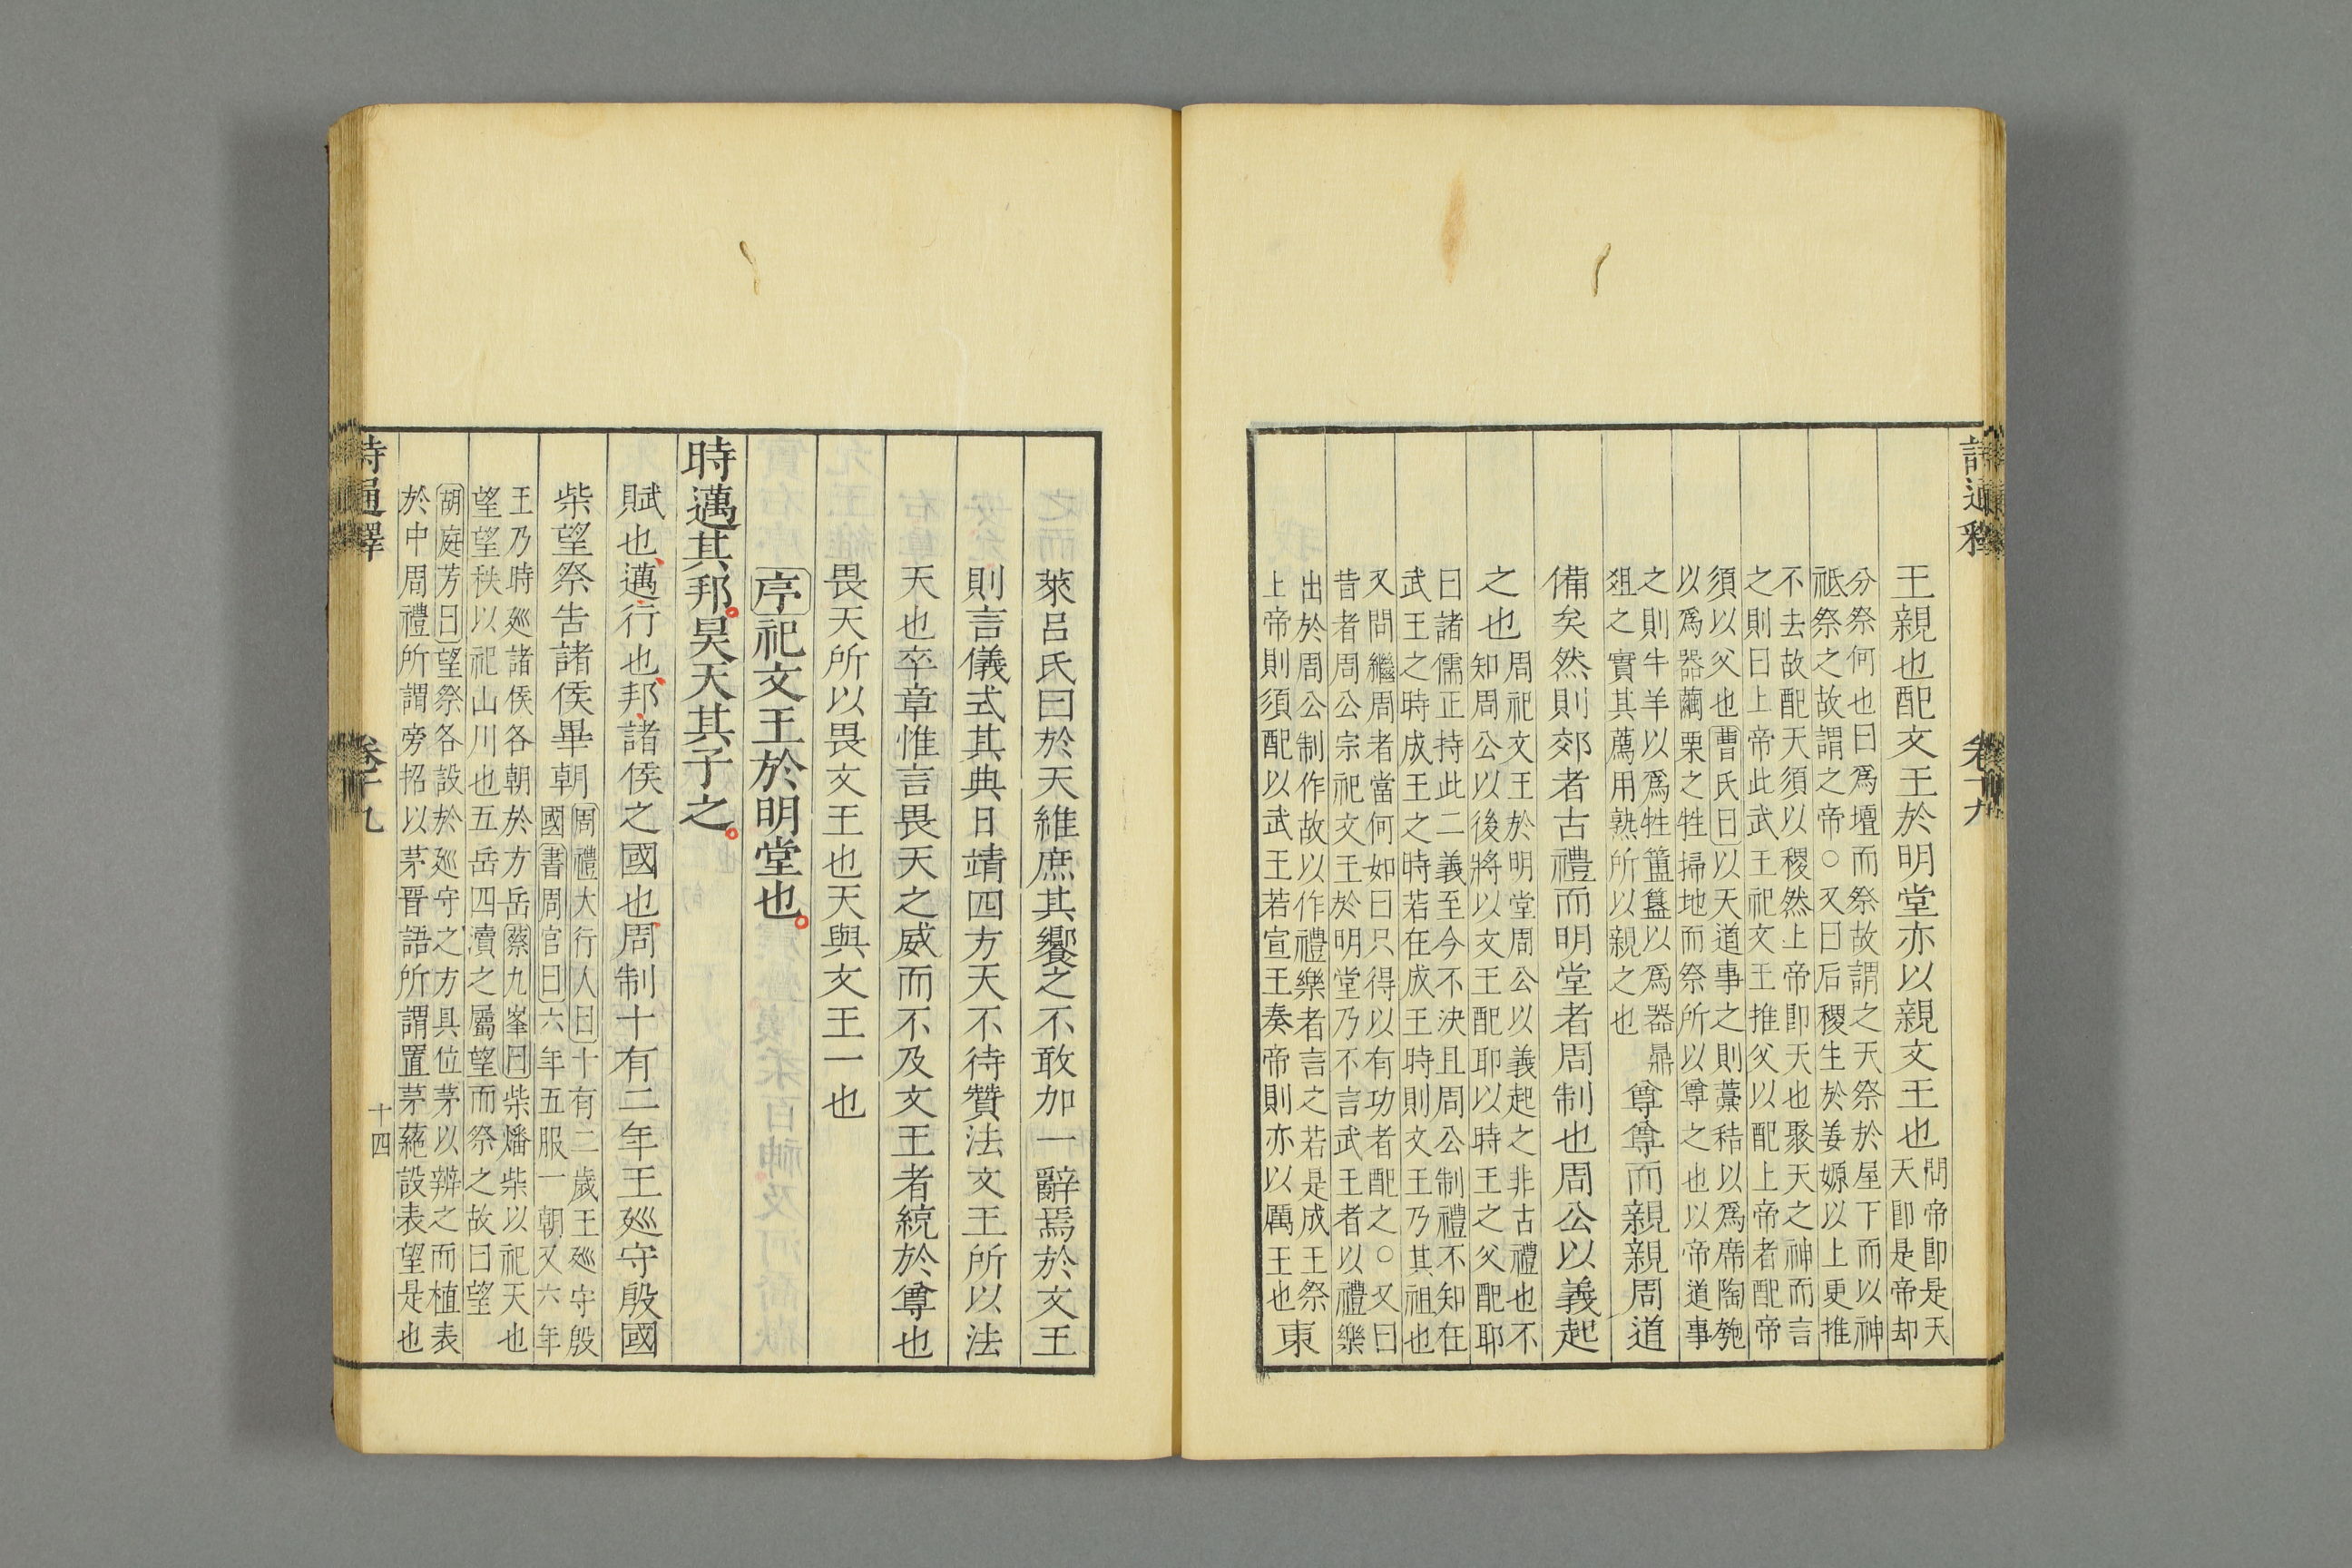 詩通釋
卷十九
王親也配文王於明堂亦以親文王也
問帝即是天
天即是帝却
分祭何也曰爲壇而祭故謂之天祭於屋下而以神
祗祭之故謂之帝○又曰后稷生於姜嫄以上更推
不去故配天須以稷然上帝即天也聚天之神而言
之則曰上帝此武王祀文王推父以配上帝者配帝
須以父也曹氏曰以天道事之則藁秸以爲席陶匏
以爲器繭栗之牲掃地而祭所以尊之也以帝道事
之則牛羊以爲牲簠簋以爲器鼎
俎之實其薦用熟所以親之也
尊尊而親親周道
備矣然則郊者古禮而明堂者周制也周公以義起
之也
周祀文王於明堂周公以義起之非古禮也不
知周公以後將以文王配耶以時王之父配耶
曰諸儒正持此二義至今不決且周公制禮不知在
武王之時成王之時若在成王時則文王乃其祖也
又問繼周者當何如曰只得以有功者配之○又曰
昔者周公宗祀文王於明堂乃不言武王者以禮樂
出於周公制作故以作禮樂者言之若是成王祭
上帝則須配以武王若宣王奏帝則亦以厲王也
東
萊呂氏曰於天維庶其饗之不敢加一辭焉於文王
則言儀式其典日靖四方天不待贊法文王所以法
天也卒章惟言畏天之威而不及文王者統於尊也
畏天所以畏文王也天與文王一也
序祀文王於明堂也
時邁其邦昊天其子之
賦也邁行也邦諸侯之國也周制十有二年王廵守殷國
柴望祭告諸侯畢朝
周禮大行人曰十有二歲王廵守殷
國書周官曰六年五服一朝又六年
王乃時廵諸侯各朝於方岳蔡九峯曰柴燔柴以祀天也
望望秩以祀山川也五岳四瀆之屬望而祭之故曰望
胡庭芳曰望祭各設於廵守之方具位茅以辨之而植表
於中周禮所謂旁招以茅晉語所謂置茅蕝設表望是也
詩通釋
卷十九
十四